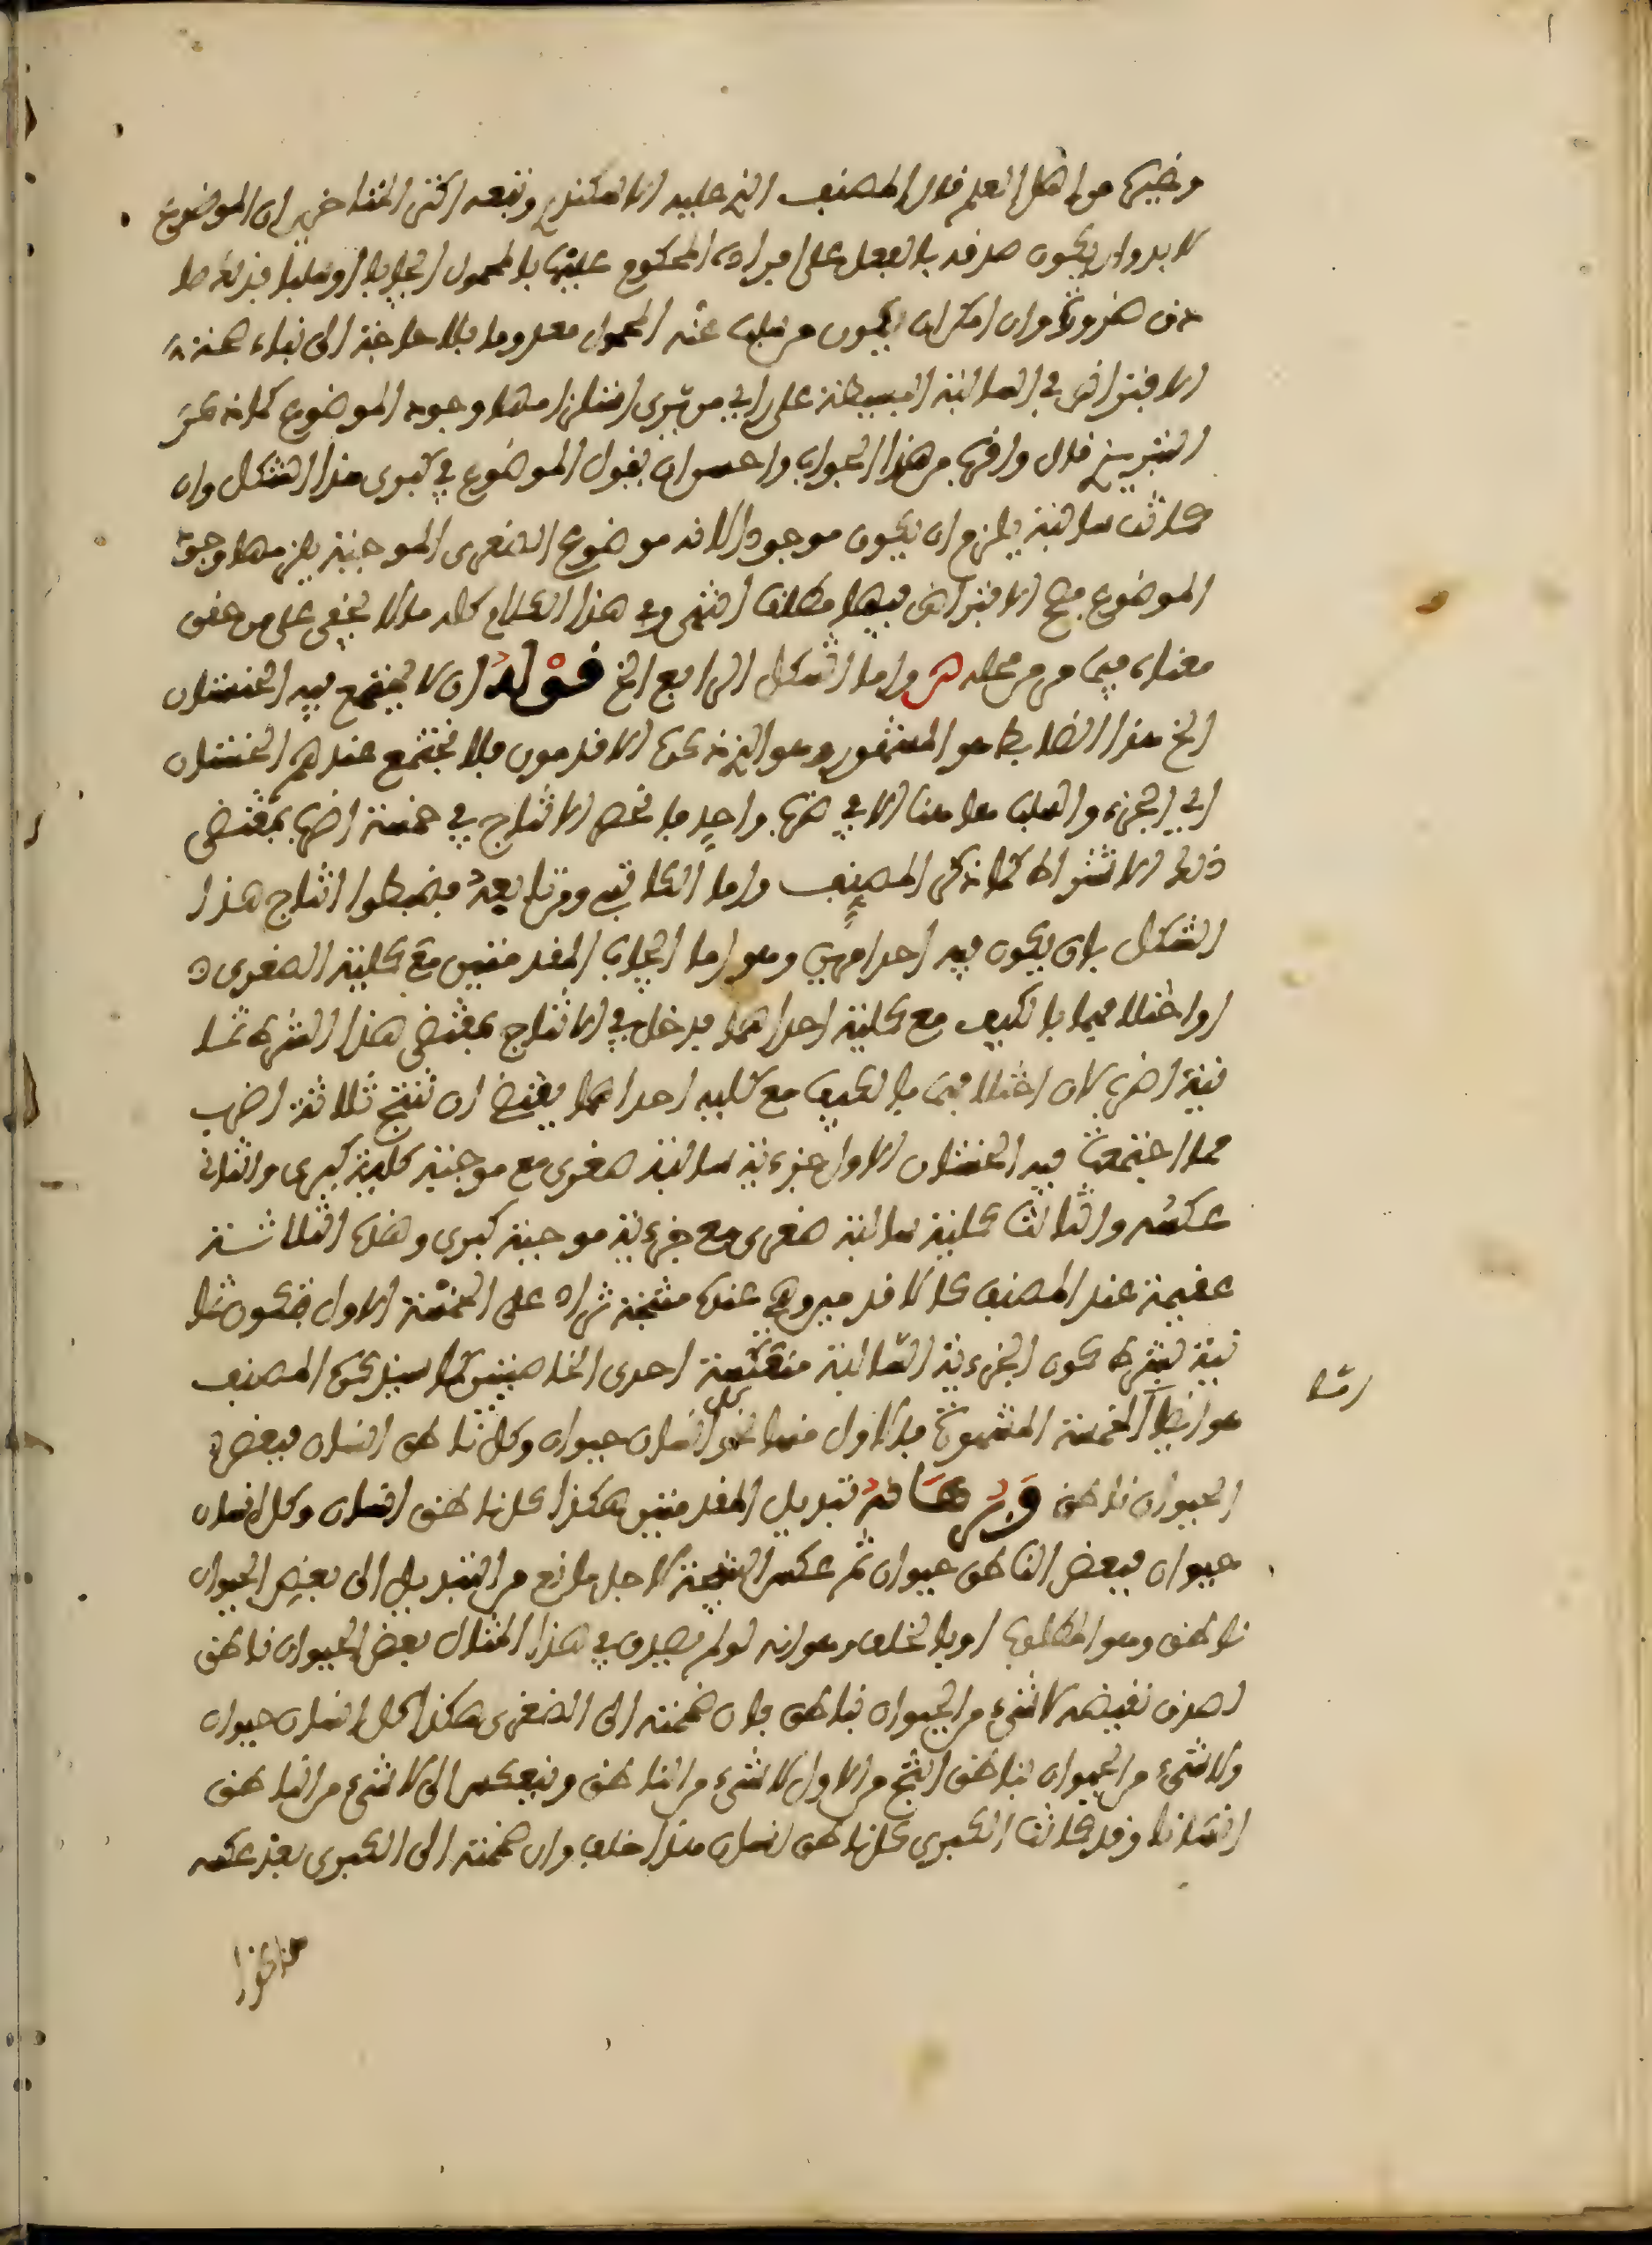 وغيره من اهل العلم قال المصنف الذي عليه الاسكندر وتبعه اكثر المتاخرين ان الموضوع
لا بد وان يكون صدقه بالفعل على افراده المحكوم عليها بالمحمول ايجابا او سلبا فذلك ما
دق ضرورة وان امكن ان يكون من سلب عنه المحمول معدوما فلا حاجة الى بناء صحة
الافتراض في السالبة البسيطة على راي من يرى استلزامها وجود الموضوع كما ذكر
التبريزي قال واقرب من هذا الجواب واحسن ان يقول الموضوع في كبرى هذا الشكل وان
كانت سالبة يلزم ان يكون موجودا لانه موضوع الصغرى الموجبة يلزمها وجود
الموضوع فصح الافتراض فيها مطلقا انتهى وفي هذا الكلام كله ما لا يخفى على من حقق
معناه فيما مر من محله ش واما الشكل الرابع الخ قوله ان لا يجتمع فيه الخستان
الخ هذا الضابط هو المشهور وهو الذي ذكره الاقدمون فلا تجتمع عندهم الخستان
اي الجزء والسلب معا هنا الا في ضرب واحد فانحصر الانتاج في خمسة اضرب بمقتضى
ذلك الاشتراط كما ذكر المصنف واما الكاتبي ومن تابعه فضبطوا انتاج هذا
الشكل بان يكون فيه احد امرين وهو اما ايجاب المقدمتين مع كلية الصغرى
او اختلافهما بالكيف مع كلية احداهما فدخل في الانتاج بمقتضى هذا الشرط ثما
نية اضرب لان اختلافهما بالكيف مع كلية احداهما يقتضي ان تنتج ثلاثة اضرب
مما اجتمعت فيه الخستان الاول جزءية سالبة صغرى مع موجبة كلية كبرى والثاني
عكسه والثالث كلية سالبة صغرى مع جزءية موجبة كبرى وهذه الثلاثة
عقيمة عند المصنف كالاقدمين وهي عنده منتجة تزاد على الخمسة الاول فتكون ثما
نية بشرط كون الجزءية السالبة منعكسة احدى الخاصيتين كما سيذكره المصنف
هو ايضا الخمسة المشهورة فالاول منها نحو كل انسان حيوان وكل ناطق انسان فبعض
الحيوان ناطق وبرهانه تبديل المقدمتين هكذا كل ناطق انسان وكل انسان
حيوان فبعض الناطق حيوان ثم عكس النتيجة لاجل ما وقع من التبديل الى بعض الحيوان
ناطق وهو المطلوب او بالخلف وهو انه لو لم يصدق في هذا المثال بعض الحيوان ناطق
لصدق نقيضه لا شيء من الحيوان بناطق فان ضممته الى الصغرى هكذا كل انسان حيوان
ولا شيء من الحيوان بناطق انتج من الاول لا شيء من الناطق وينعكس الى لا شيء من الناطق
انسانا وقد كانت الكبرى كل ناطق انسان هذا خلف وان ضممته الى الكبرى بعد عكسه
هكذا